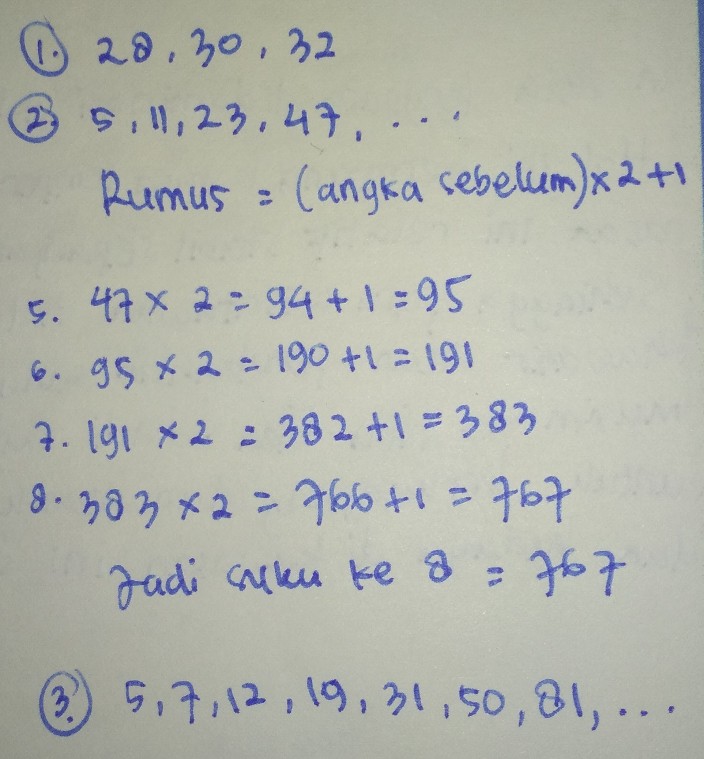 1. 28, 30, 32
2. 5, 11, 23, 47, ...
Rumus = (angka sebelum) x 2 + 1
5. 47 x 2 = 94 + 1 = 95
6. 95 x 2 = 190 + 1 = 191
7. 191 x 2 = 382 + 1 = 383
8. 383 x 2 = 766 + 1 = 767
Jadi suku ke 8 = 767
3. 5, 7, 12, 19, 31, 50, 81, ...